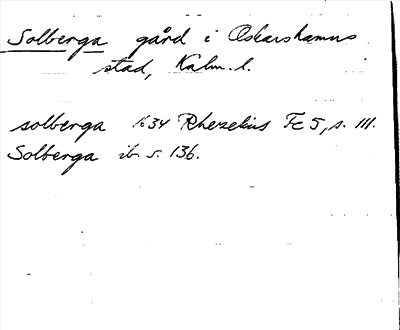 Solberga gård i Oskarshamns
stad, Kalm. l.
solberga 1634 Rhezelius Fc 5, s. 111.
Solberga ib. s. 136.